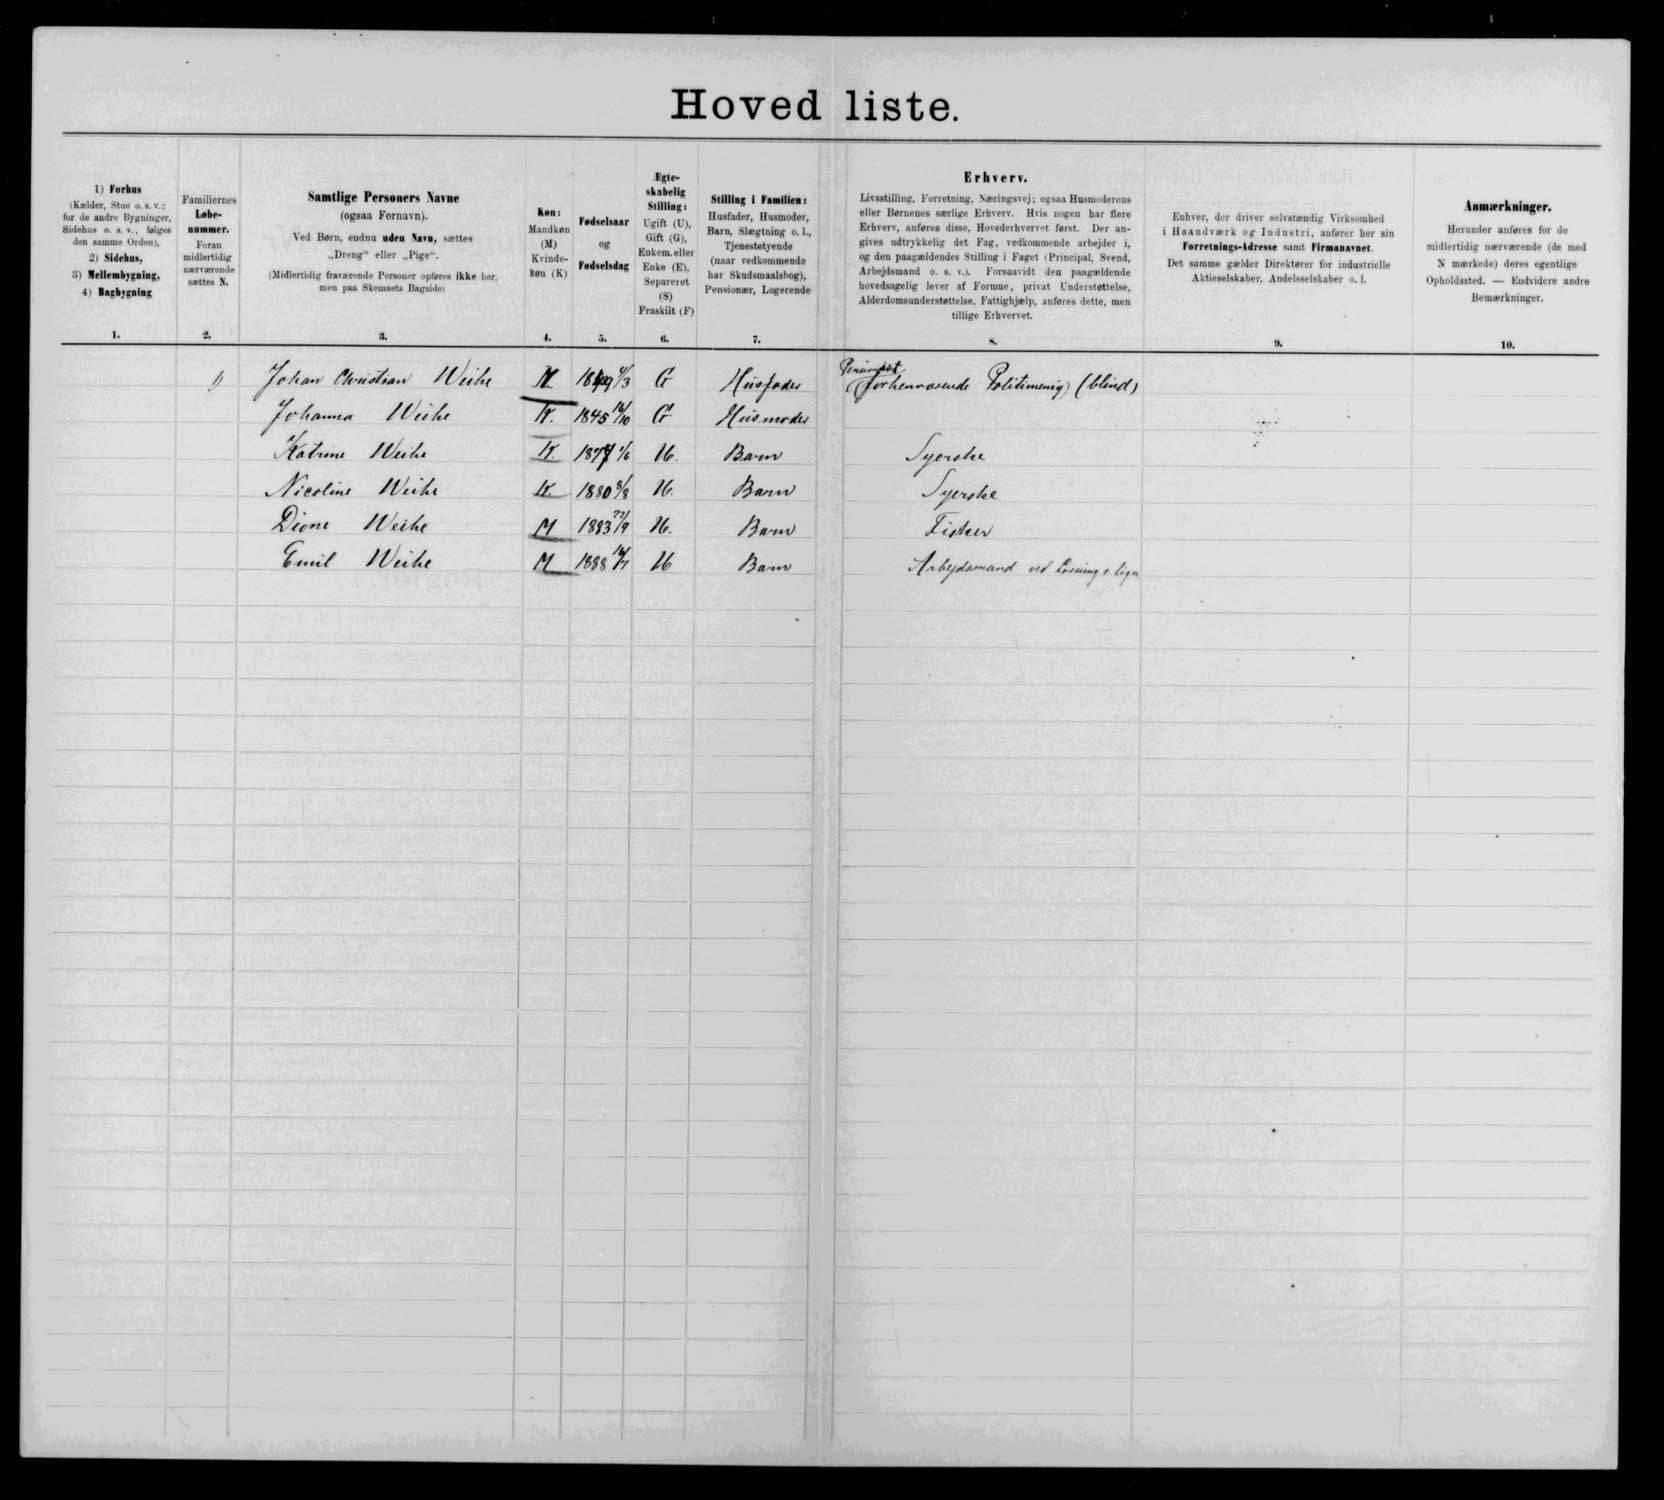 Hoved liste.
1) Forhus
(Kælder, Stue o. s. v.;
for de andre Bygninger,
Sidehus o. s. v., følges
den samme Orden),
2) Sidehus,
3) Mellembygning,
4) Bagbygning
1.
Familiernes
Løbe-
nummer.
Foran
midlertidig
nærværende
sættes N.
2.
Samtlige Personers Navne
(ogsaa Fornavn).
Ved Børn, endnu uden Navn, sættes
„Dreng“ eller „Pige“.
(Midlertidig fraværende Personer opføres ikke her,
men paa Skemaets Bagside)
3.
Køn:
Mandkøn
(M)
Kvinde-
køn (K)
4.
Fødselsaar
og
Fødselsdag
5.
Ægte-
skabelig
Stilling:
Ugift (U),
Gift (G),
Enkem. eller
Enke (E),
Separeret
(S)
Fraskilt (F)
6.
Stilling i Familien:
Husfader, Husmoder,
Barn, Slægtning o. l.,
Tjenestetyende
(naar vedkommende
har Skudsmaalsbog),
Pensionær, Logerende
7.
Erhverv.
Livsstilling, Forretning, Næringsvej; ogsaa Husmoderens
eller Børnenes særlige Erhverv. Hvis nogen har flere
Erhverv, anføres disse, Hovederhvervet først. Der an-
gives udtrykkelig det Fag, vedkommende arbejder i,
og den paagældendes Stilling i Faget (Principal, Svend,
Arbejdsmand o. s. v.). Forsaavidt den paagældende
hovedsagelig lever af Formue, privat Understøttelse,
Alderdomsunderstøttelse, Fattighjælp, anføres dette, men
tillige Erhvervet.
8.
Enhver, der driver selvstændig Virksomhed
i Haandværk og Industri, anfører her sin
Forretnings-Adresse samt Firmanavnet.
Det samme gælder Direktører for industrielle
Aktieselskaber, Andelsselskaber o. l.
9.
Anmærkninger.
Herunder anføres for de
midlertidig nærværende (de med
N mærkede) deres egentlige
Opholdssted. — Endvidere andre
Bemærkninger.
10.
1) Johan Christian Weihe M. G Husfader (forhenværende Politimenig) (blind)
Johanna Weihe K. 1845 16/10 G Husmoder
Katrine Weihe K. 1/6 U. Barn Syerske
Nicoline Weihe K. 1880 8/8 U. Barn Syerske
Dione Weihe M 1883 22/9 U. Barn Fisker
Emil Weihe M 1888 U Barn Arbejdsmand ved Losning o. lign